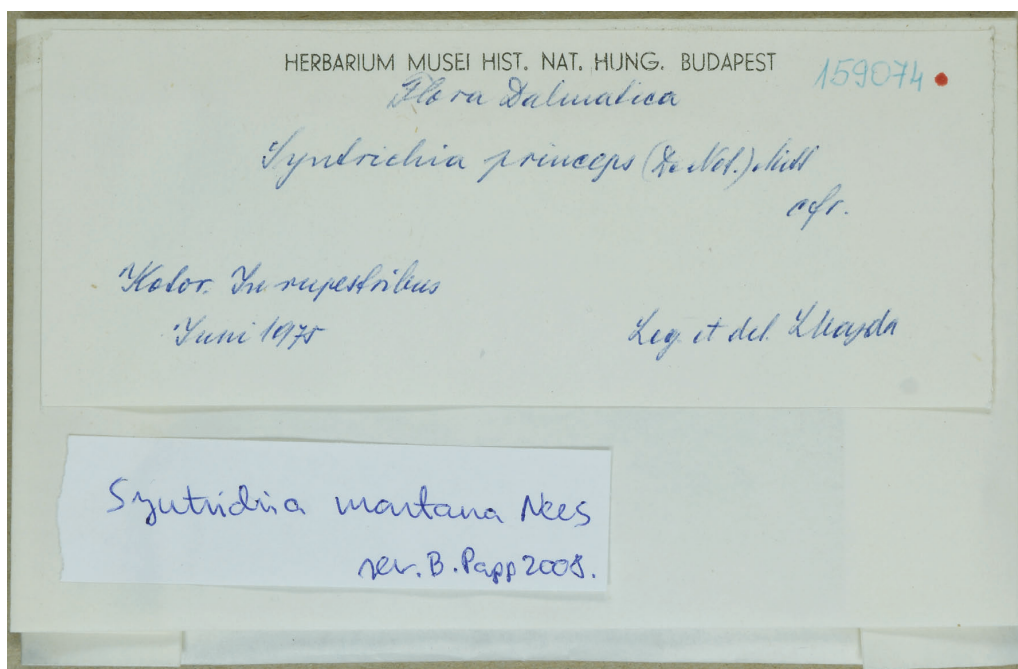 HERBARIUM MUSEI HIST. NAT. HUNG. BUDAPEST
159074
Flora Dalmatica
Syntrichia princeps (De Not.) Mitt
cfr.
Kotor. In rupestribus
Juni 1975
Leg. et det. L Vajda
Syntrichia montana Nees
rev. B. Papp 2008.